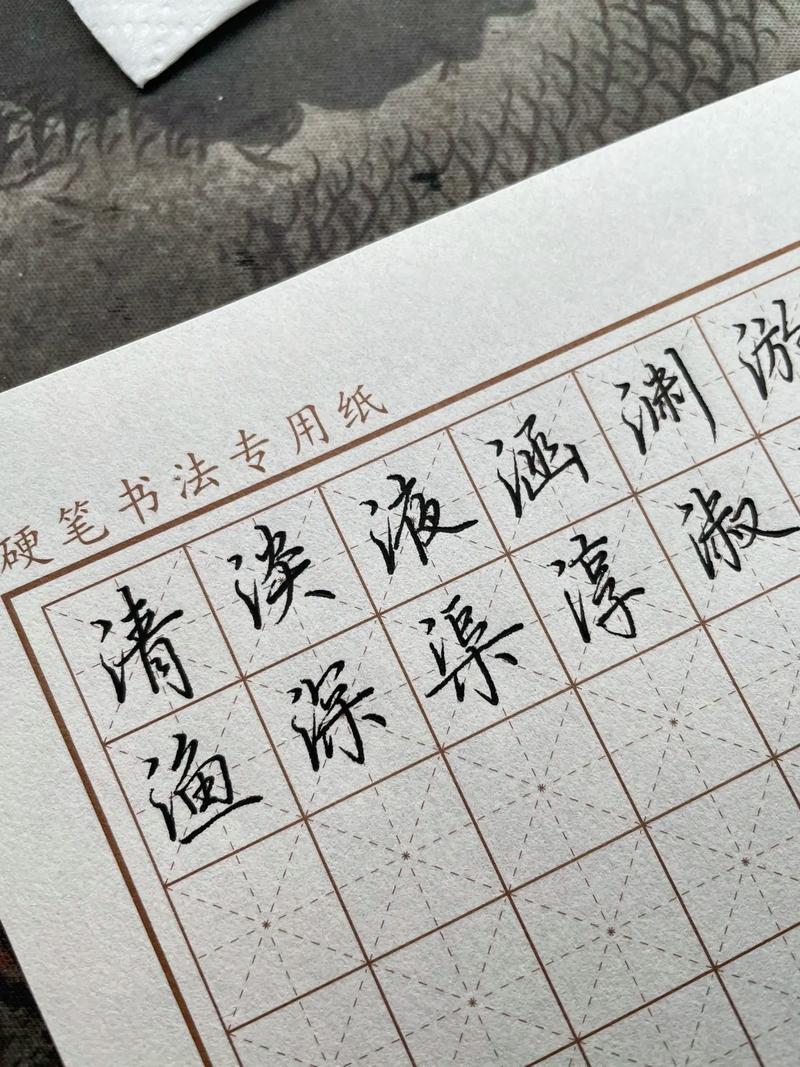 硬笔书法专用纸
清淡液涵渊游
渔深渠淳淑